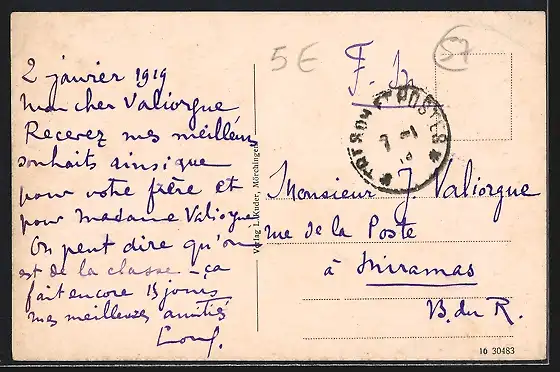 5E
57
F. M
2 janvier 1919
mon cher Valiorgue
Recevez mes meilleurs
souhaits ainsi que
pour votre frère et
pour Madame Valiorgue
On peut dire qu'on
est de la classe - ça
fait encore 15 jours
mes meilleures amitiés
Verlag L. Kuder, Mörchingen
TRESOR ET POSTES
Monsieur J. Valiorgue
rue de la Poste
à Miramas
B. du R.
16 30483